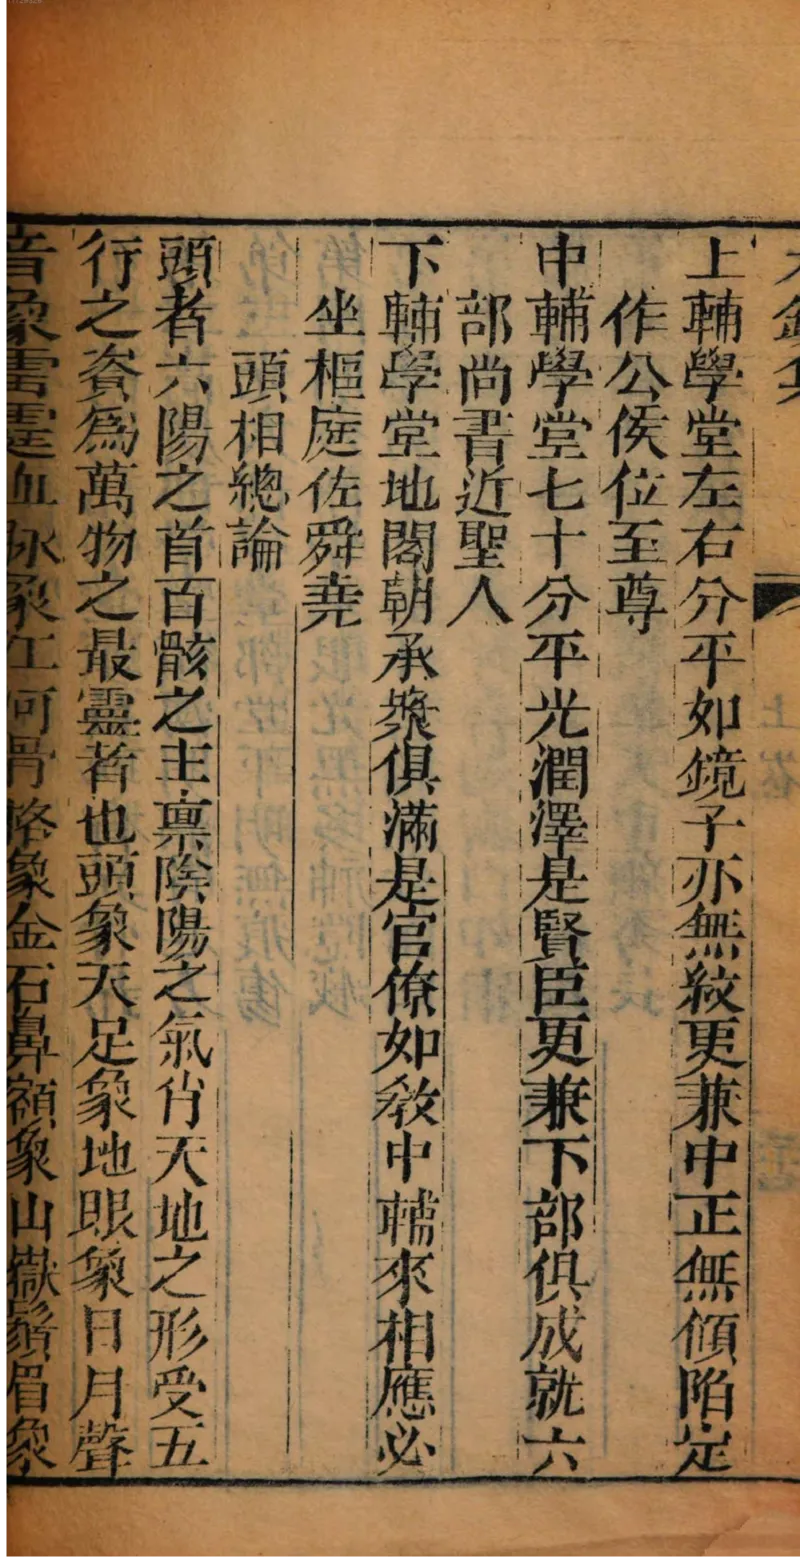 上輔學堂左右分平如鏡子亦無紋更兼中正無傾陷定
作公侯位至尊
中輔學堂七十分平光潤澤是賢臣更兼下部俱成就六
部尚書近聖人
下輔學堂地閣朝承漿俱滿是官僚如教中輔來相應必
坐樞庭佐舜堯
頭相總論
頭者六陽之首百骸之主稟陰陽之氣肖天地之形受五
行之資爲萬物之最靈者也頭象天足象地眼象日月聲
音象雷霆血脉象江河骨骼象金石鼻額象山嶽鬚眉象